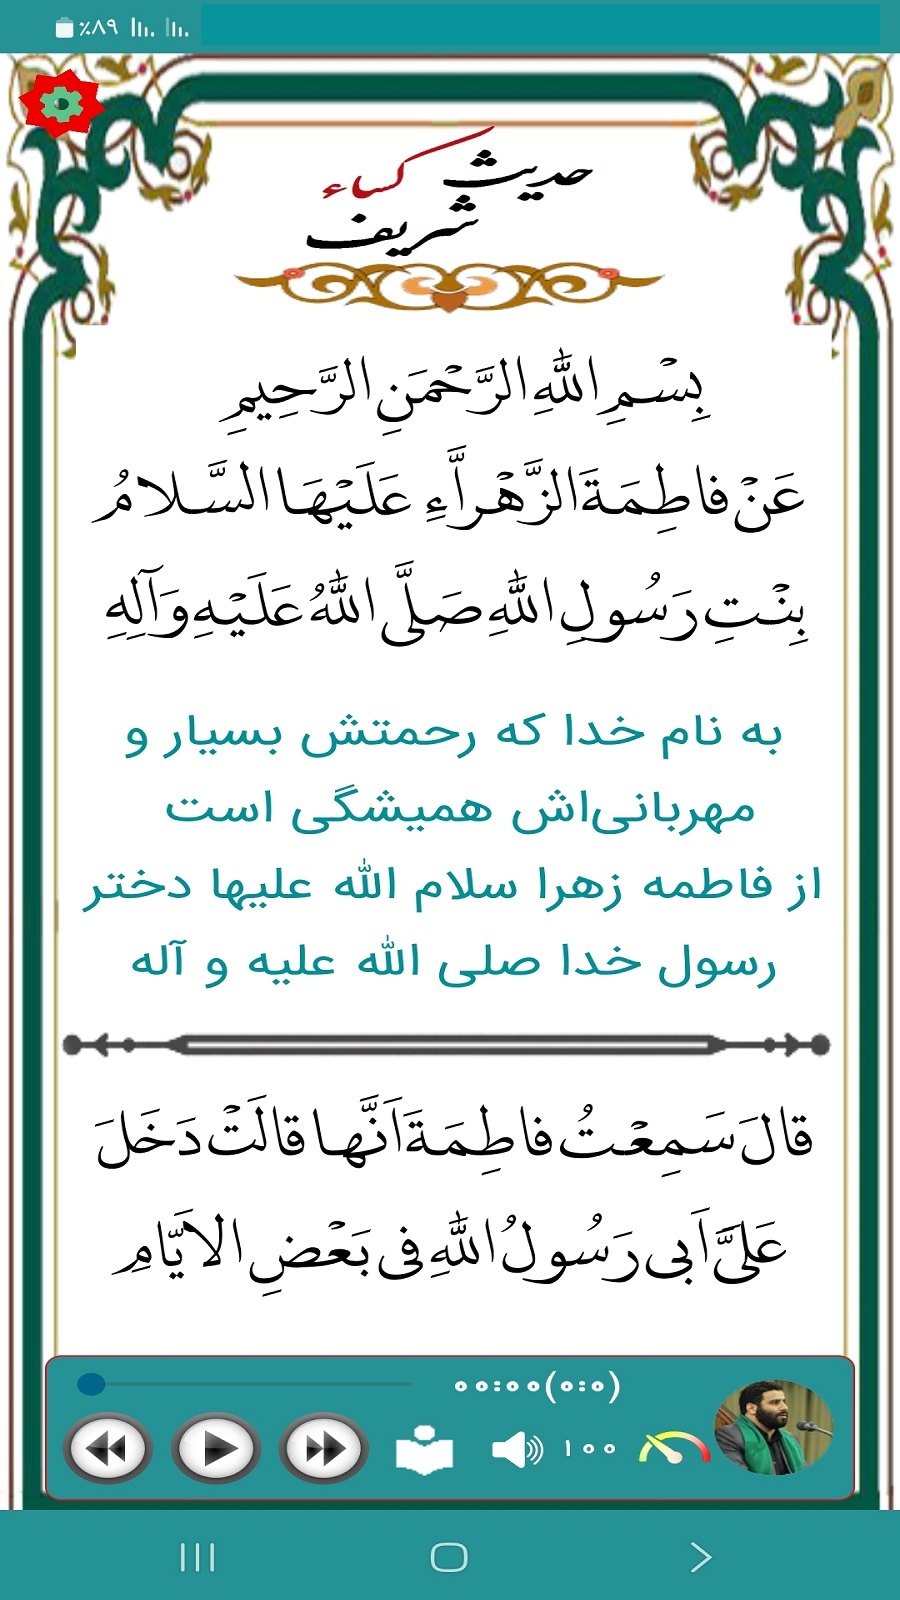 ٪۸۹
حدیث کساء
شریف
بِسْمِ اللّٰهِ الرَّحْمَنِ الرَّحِیمِ
عَنْ فاطِمَةَ الزَّهْراَّءِ عَلَیْهَا السَّلامُ
بِنْتِ رَسُولِ اللّٰهِ صَلَّى اللّٰهُ عَلَیْهِ وَآلِهِ
به نام خدا که رحمتش بسیار و
مهربانی‌اش همیشگی است
از فاطمه زهرا سلام الله علیها دختر
رسول خدا صلی الله علیه و آله
قالَ سَمِعْتُ فاطِمَةَ اَنَّها قالَتْ دَخَلَ
عَلَىَّ اَبى رَسُولُ اللّٰهِ فى بَعْضِ الاَیّامِ
۰۰:۰۰(۰:۰)
۱۰۰